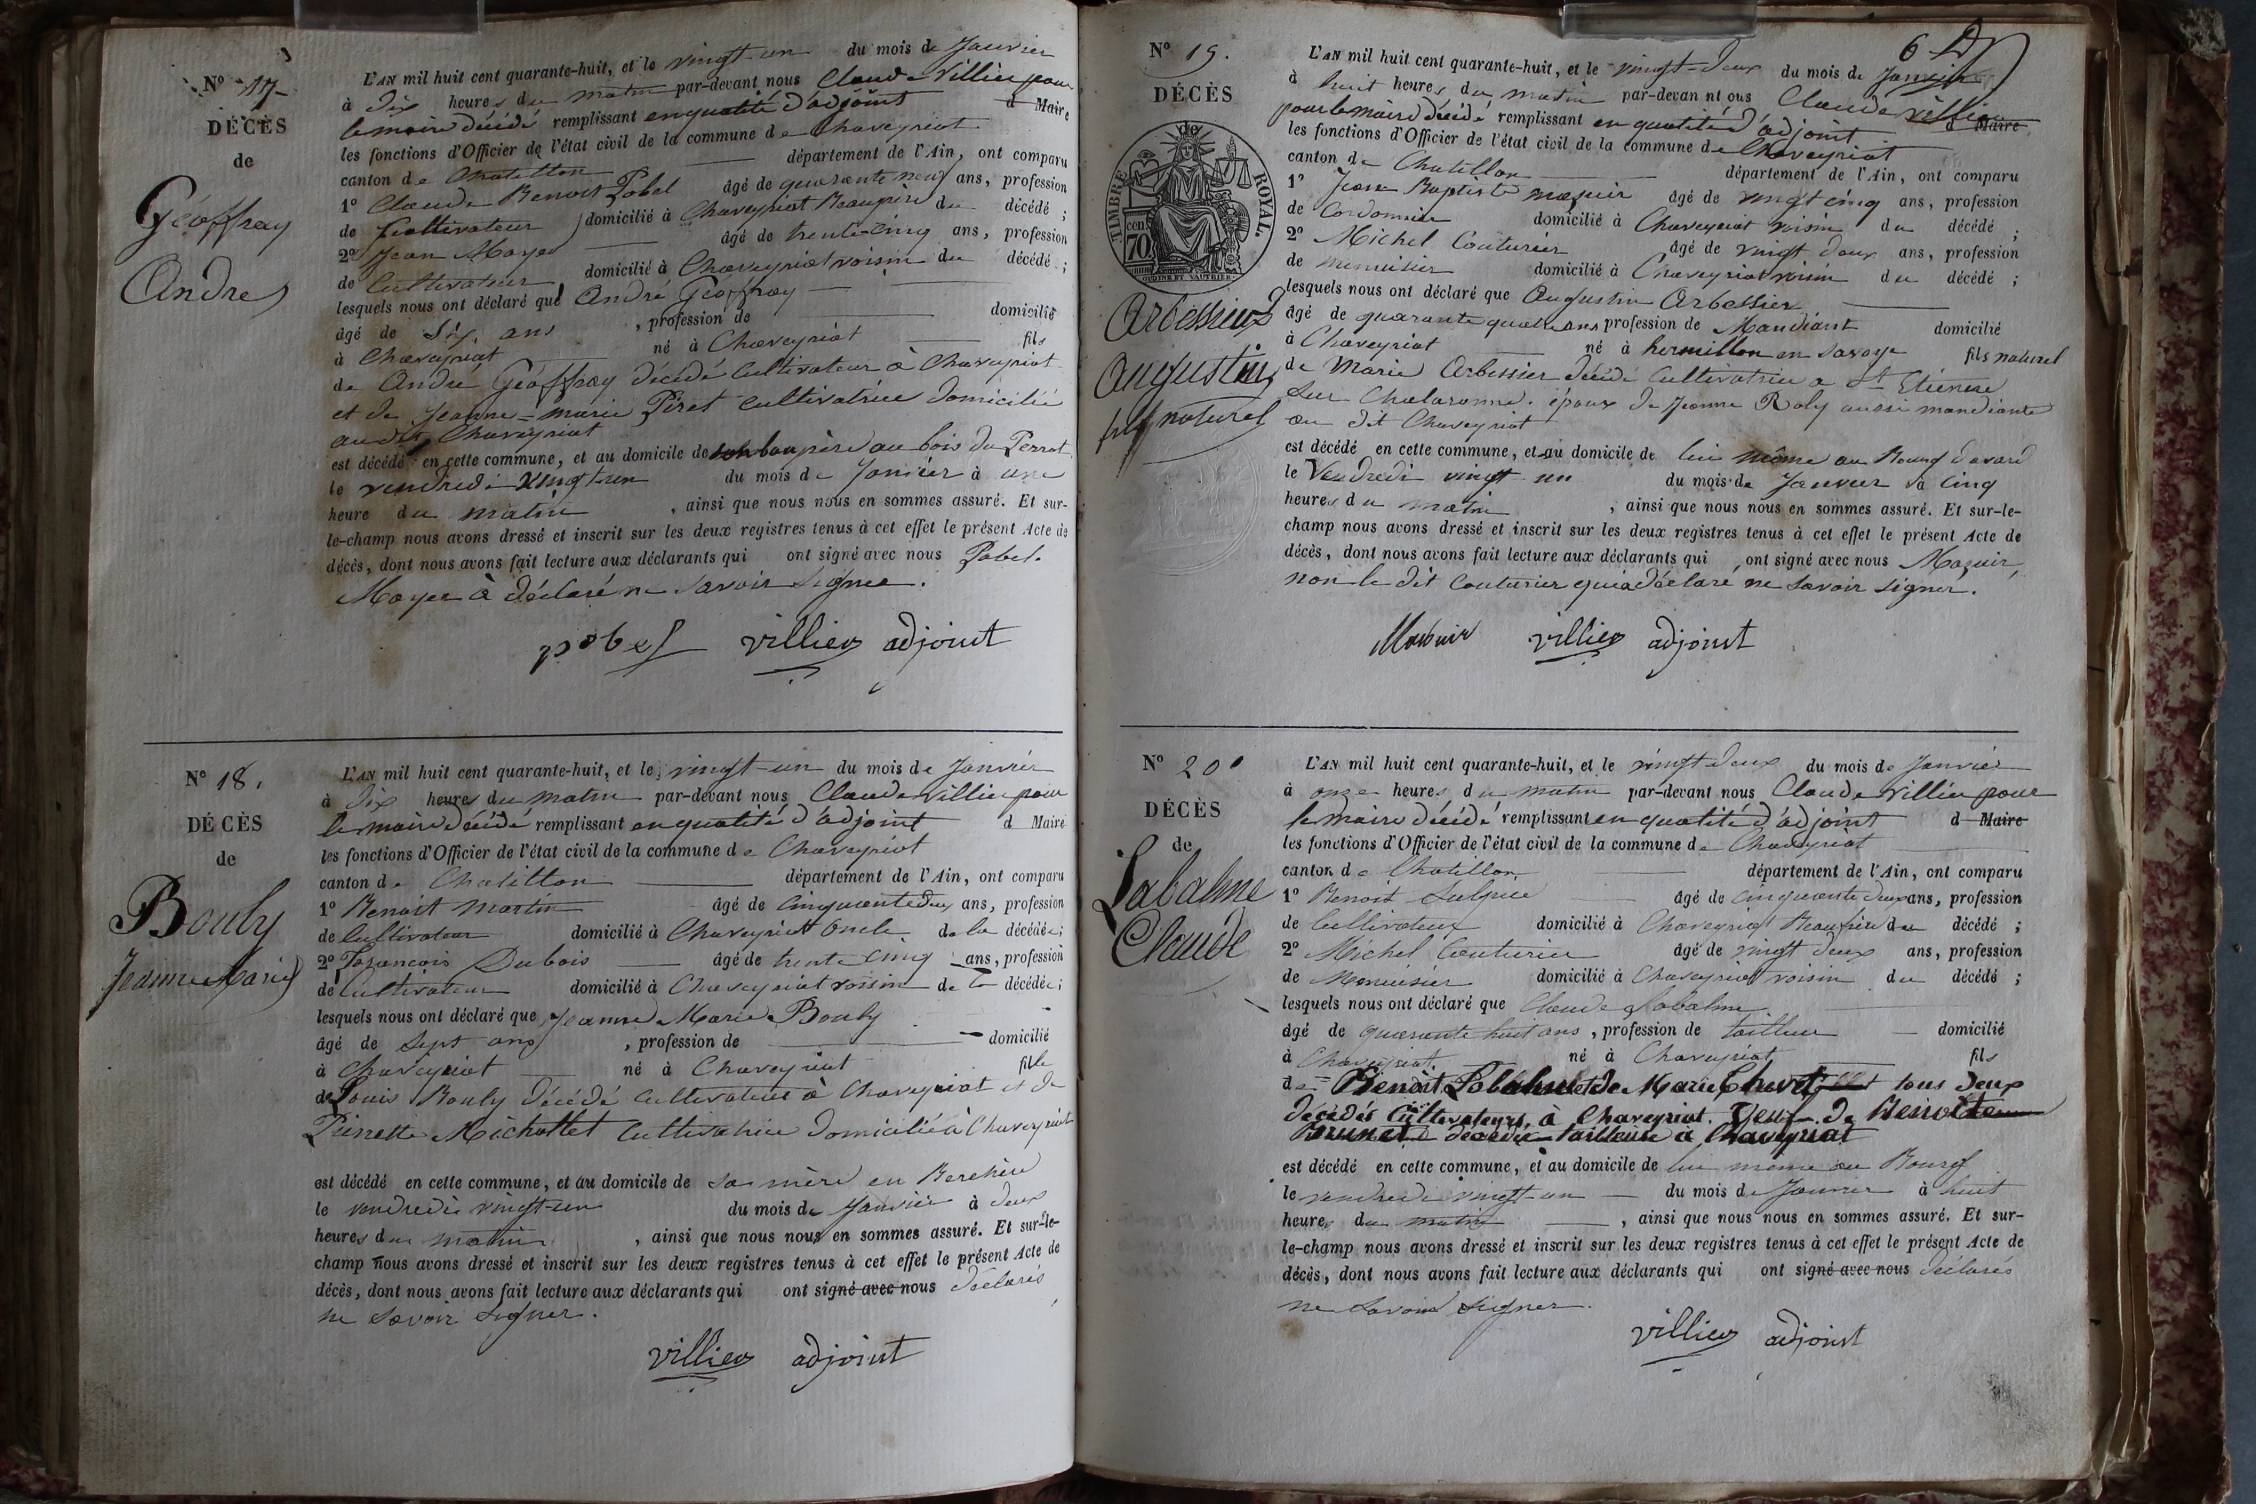 N° 17
DÉCÈS
de
Géoffray
André
L'AN mil huit cent quarante-huit, et le vingt-un du mois de Janvier
à dix heures du matin par-devant nous Claude Villier pour
le maire décédé remplissant en qualité d'adjoint d Maire
les fonctions d'Officier de l'état civil de la commune de Chaveyriat
canton de Chatillon département de l'Ain, ont comparu
1° Claude Benoit Pobel âgé de quarante neuf ans, profession
de Cultivateur domicilié à Chaveyriat Beaupère du décédé ;
2° Jean Moyer âgé de trente-cinq ans, profession
de Cultivateur domicilié à Chaveyriat voisin du décédé ;
lesquels nous ont déclaré que André Géoffray
âgé de Six ans , profession de domicilié
à Chaveyriat né à Chaveyriat fils
de André Géoffray décédé Cultivateur à Chaveyriat
et de Jeanne-marie Piret cultivatrice domiciliée
au dit Chaveyriat
est décédé en cette commune, et au domicile de son beau père au bois du Perrot
le vendredi vingt-un du mois de Janvier à une
heure du matin , ainsi que nous nous en sommes assuré. Et sur-
le-champ nous avons dressé et inscrit sur les deux registres tenus à cet effet le présent Acte de
décès, dont nous avons fait lecture aux déclarants qui ont signé avec nous Pobel.
Moyer à déclaré ne savoir signer.
pobel villier adjoint
N° 18.
DÉCÈS
de
Bouly
Jeanne Marie
L'AN mil huit cent quarante-huit, et le vingt-un du mois de Janvier
à dix heures du matin par-devant nous Claude Villier pour
le maire décédé remplissant en qualité d'adjoint d Maire
les fonctions d'Officier de l'état civil de la commune de Chaveyriat
canton de Chatillon département de l'Ain, ont comparu
1° Benoit Martin âgé de cinquante deux ans, profession
de Cultivateur domicilié à Chaveyriat Oncle de la décédée ;
2° François Dubois âgé de trente cinq ans, profession
de Cultivateur domicilié à Chaveyriat voisin de la décédée ;
lesquels nous ont déclaré que Jeanne Marie Bouly
âgé de Sept ans , profession de domicilié
à Chaveyriat né à Chaveyriat fille
de Louis Bouly décédé cultivateur à Chaveyriat et de
Pierrette Michallet Cultivatrice domiciliée à Chaveyriat
est décédé en cette commune, et au domicile de sa mère en
le vendredi vingt-un du mois de Janvier à deux
heures du matin , ainsi que nous nous en sommes assuré. Et sur-le-
champ nous avons dressé et inscrit sur les deux registres tenus à cet effet le présent Acte de
décès, dont nous avons fait lecture aux déclarants qui ont signé avec nous déclarés
ne savoir signer.
villier adjoint
6
N° 19.
DÉCÈS
de
TIMBRE ROYAL.
70 cen.
Arbessier
Augustin
fils naturel
L'AN mil huit cent quarante-huit, et le vingt-deux du mois de Janvier
à huit heures du matin par-devan nt ous Claude Villier
pour le maire décédé remplissant en qualité d'adjoint d Maire
les fonctions d'Officier de l'état civil de la commune de Chaveyriat
canton de Chatillon département de l'Ain, ont comparu
1° Jean Baptiste Mazuir âgé de vingt cinq ans, profession
de Cordonnier domicilié à Chaveyriat voisin du décédé ;
2° Michel Couturier âgé de vingt deux ans, profession
de menuisier domicilié à Chaveyriat voisin du décédé ;
lesquels nous ont déclaré que Augustin Arbessier
âgé de quarante quatre ans profession de Mandiant domicilié
à Chaveyriat né à hermillon en Savoye fils naturel
de Marie Arbessier décédé Cultivatrice a St Etienne
sur Chalaronne. époux de Jeanne Roly aussi mandiante
au dit Chaveyriat
est décédé en cette commune, et au domicile de lui même au Bourg
le Vendredi vingt-un du mois de Janvier à Cinq
heures du matin , ainsi que nous nous en sommes assuré. Et sur-le-
champ nous avons dressé et inscrit sur les deux registres tenus à cet effet le présent Acte de
décès, dont nous avons fait lecture aux déclarants qui ont signé avec nous Mazuir,
non le dit Couturier qui a déclaré ne savoir signer.
Mazuir villier adjoint
N° 20
DÉCÈS
de
Labalme
Claude
L'AN mil huit cent quarante-huit, et le vingt deux du mois de Janvier
à onze heures du matin par-devant nous Claude Villier pour
le maire décédé remplissant en qualité d'adjoint d Maire
les fonctions d'Officier de l'état civil de la commune de Chaveyriat
canton de Chatillon département de l'Ain, ont comparu
1° Benoit Sulpice âgé de cinquante deux ans, profession
de Cultivateur domicilié à Chaveyriat Beaufrère du décédé ;
2° Michel Couturier âgé de vingt deux ans, profession
de Menuisier domicilié à Chaveyriat voisin du décédé ;
lesquels nous ont déclaré que Claude Labalme
âgé de quarante huit ans , profession de tailleur domicilié
à Chaveyriat né à Chaveyriat fils
de Benoit Labalme et de Marie Chavet tous deux
décédés Cultivateurs, à Chaveyriat. Veuf de Benoite
Brunet décédée tailleuse à Chaveyriat
est décédé en cette commune, et au domicile de lui même au Bourg
le vendredi vingt-un du mois de Janvier à huit
heures du matin , ainsi que nous nous en sommes assuré. Et sur-
le-champ nous avons dressé et inscrit sur les deux registres tenus à cet effet le présent Acte de
décès, dont nous avons fait lecture aux déclarants qui ont signé avec nous déclarés
ne savoir signer.
villier adjoint